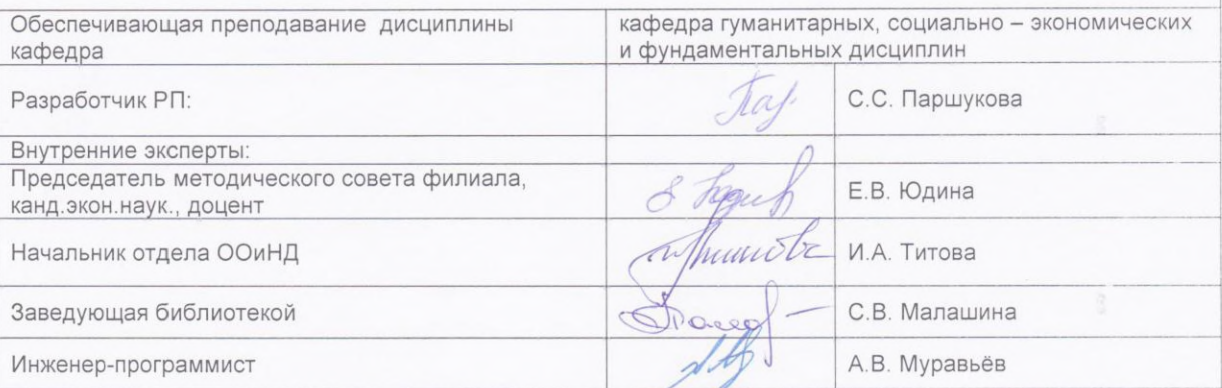 Обеспечивающая преподавание дисциплины кафедра гуманитарных, социально – экономических
кафедра и фундаментальных дисциплин
Разработчик РП: С.С. Паршукова
Внутренние эксперты:
Председатель методического совета филиала,
канд.экон.наук., доцент Е.В. Юдина
Начальник отдела ООиНД И.А. Титова
Заведующая библиотекой С.В. Малашина
Инженер-программист А.В. Муравьёв